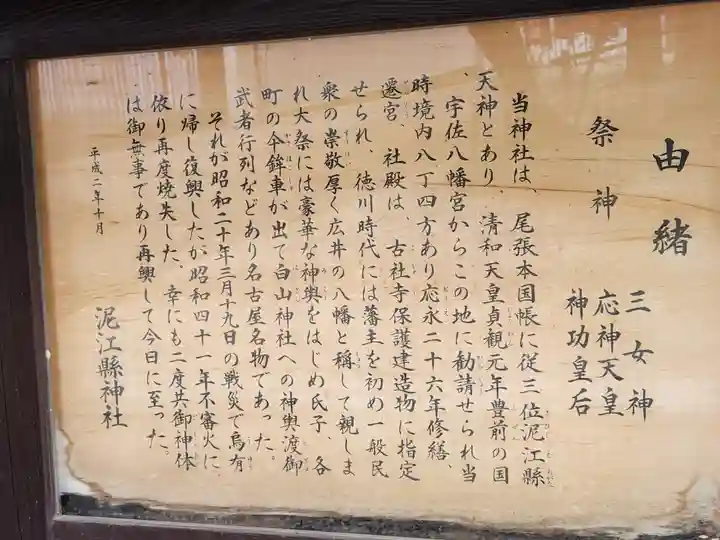 由緒
祭神
三女神
応神天皇
神功皇后
当神社は、尾張本国帳に従三位泥江縣
天神とあり、清和天皇貞観元年豊前の国
、宇佐八幡宮からこの地に勧請せられ当
時境内八丁四方あり応永二十六年修繕、
遷宮、社殿は、古社寺保護建造物に指定
せられ、徳川時代には藩主を初め一般民
衆の崇敬厚く広井の八幡と称して親しま
れ大祭には豪華な神輿をはじめ氏子、各
町の傘鉾車が出て白山神社への神輿渡御
武者行列などあり名古屋名物であった。
それが昭和二十年三月十九日の戦災で烏有
に帰し復興したが昭和四十一年不審火に
依り再度焼失した。幸にも二度共御神体
は御無事であり再興して今日に至った。
平成二年十月
泥江縣神社